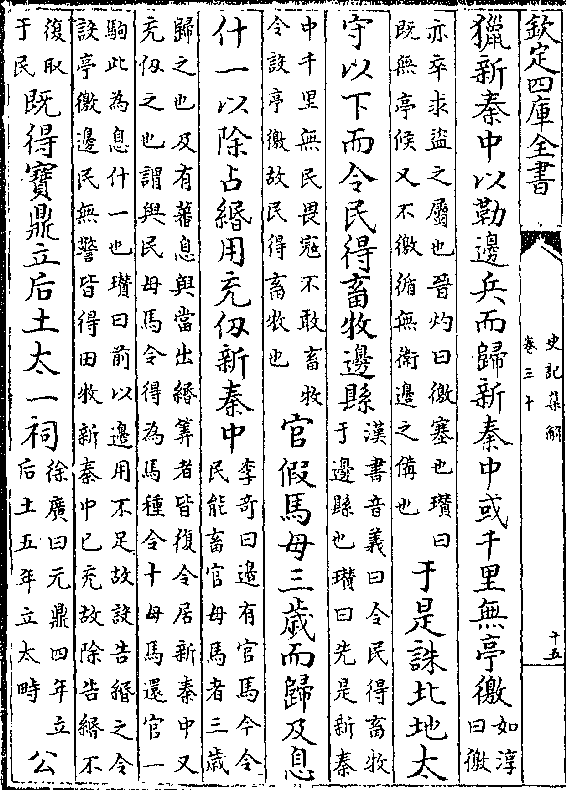 欽定四庫全書
史記集解
卷三十
十五
獵新秦中以勒邊兵而歸新秦中或千里無亭徼如淳
曰徼
亦卒求盜之屬也晉灼曰徼塞也瓚曰
既無亭候又不徼循無衛邊之備也
于是誅北地太
守以下而令民得畜牧邊縣
漢書音義曰令民得畜牧
于邊縣也瓚曰先是新秦
中千里無民畏寇不敢畜牧
令設亭徼故民得畜牧也
官假馬母三歲而歸及息
什一以除占緡用充仭新秦中
李奇曰邊有官馬今令
民能畜官母馬者三歲
歸之也及有蕃息與當出緡筭者皆復令居新秦中又
充仭之也謂與民母馬令得為馬種令十母馬還官一
駒此為息什一也瓚曰前以邊用不足故設告緡之令
設亭徼邊民無警皆得田牧新秦中已充故除告緡不
復取
于民
既得寶鼎立后土太一祠
徐廣曰元鼎四年立
后土五年立太畤
公